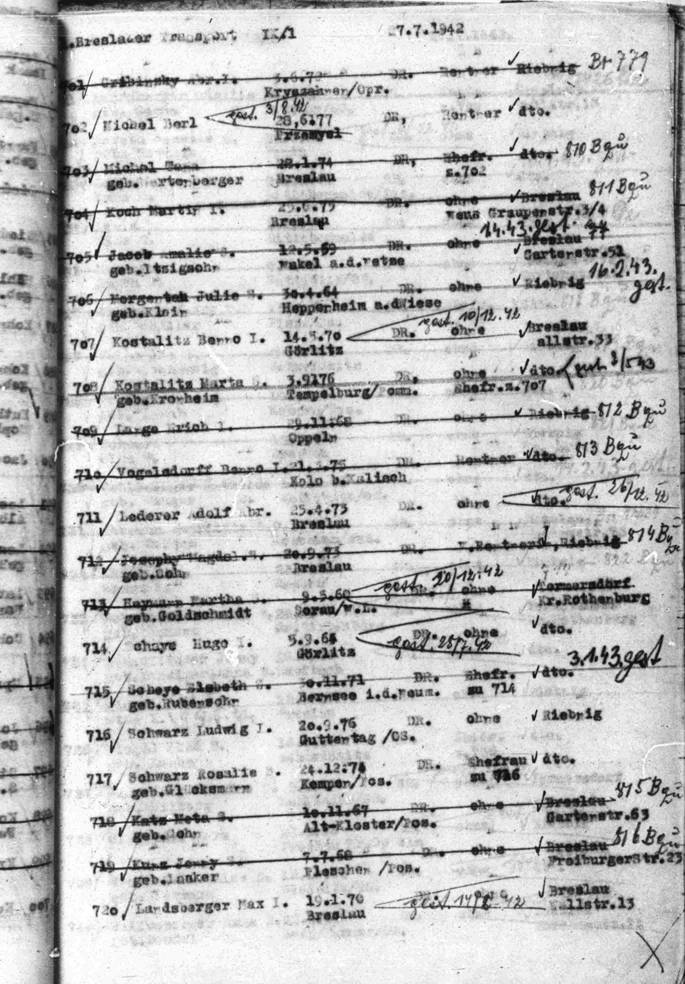 .Breslauer Transport IX/1 27.7.1942
701 Gribinsky Abr.I. DR. Rentner Riebnig Br 779
Kryszahnen/Opr.
702 Michel Berl gest. 3/8.42 28,6.77 DR, Rentner dto.
Przemysl
703 Michel 28.1.74 DR, Ehefr. dto. 810 Bqu
geb. Breslau z.702
704 Koch Martin I. 25.6.75 DR. ohne Breslau 811 Bqu
Breslau Neue Graupenstr.3/4
1.4.43. gest.
705 Jacob Amalie S. 12.5.59 DR. ohne Breslau
geb.Itzigsohn Nakel a.d.Netze Gartenstr.51
706 Julie S. 30.4.64 DR. ohne Riebnig 16.2.43.
geb.Klein Heppenheim a.dWiese gest.
707 Kostalitz Benno I. 14.5.70 DR. gest. 10/12.42 ohne Breslau
Görlitz allstr.33
708 Kostalitz Marta S. 3.9176 DR. ohne dto. gest.
geb.Kronheim Tempelburg/Pomm. Ehefr.z.707
709 Lange Erich I. 29.11.68 DR. ohne Riebnig 812 Bqu
Oppeln
710 Vogelsdorff Benno I. DR. Rentner dto. 813 Bqu
Kolo b.Kalisch
711 Lederer Adolf Abr. 25.4.73 DR. ohne dto. gest. 26/12.42
Breslau
712 Josephy Magdal.S. 20.9.73 DR. Riebnig 814 Bqu
geb.Cohn Breslau
713 Heymann Martha S. gest. 20/12.42 ohne Tormersdorf
geb.Goldschmidt Sorau/N.L. Kr.Rothenburg
714 Schaye Hugo I. 5.9.65 DR. ohne dto.
Görlitz gest.
3.1.43.gest
715 Scheye Elsbeth S. DR. Ehefr. dto.
geb.Rubensohn Bernsee i.d.Neum. zu 714
716 Schwarz Ludwig I. 20.9.76 DR. ohne Riebnig
Guttentag /OS.
717 Schwarz Rosalie S. 24.12.74 DR. Ehefrau dto.
geb.Glücksmann Kempen/Pos. zu 716
718 Katz Meta S. 10.11.67 DR. ohne Breslau 815 Bqu
geb.Cohn Alt-Kloster/Pos. Gartenstr.63
719 Kunz Jenny S. 7.7.68 DR. ohne Breslau 816 Bqu
Pleschen /Pos. FreiburgerStr.23
720 Landsberger Max I. 19.1.70 Breslau
Breslau Wallstr.13